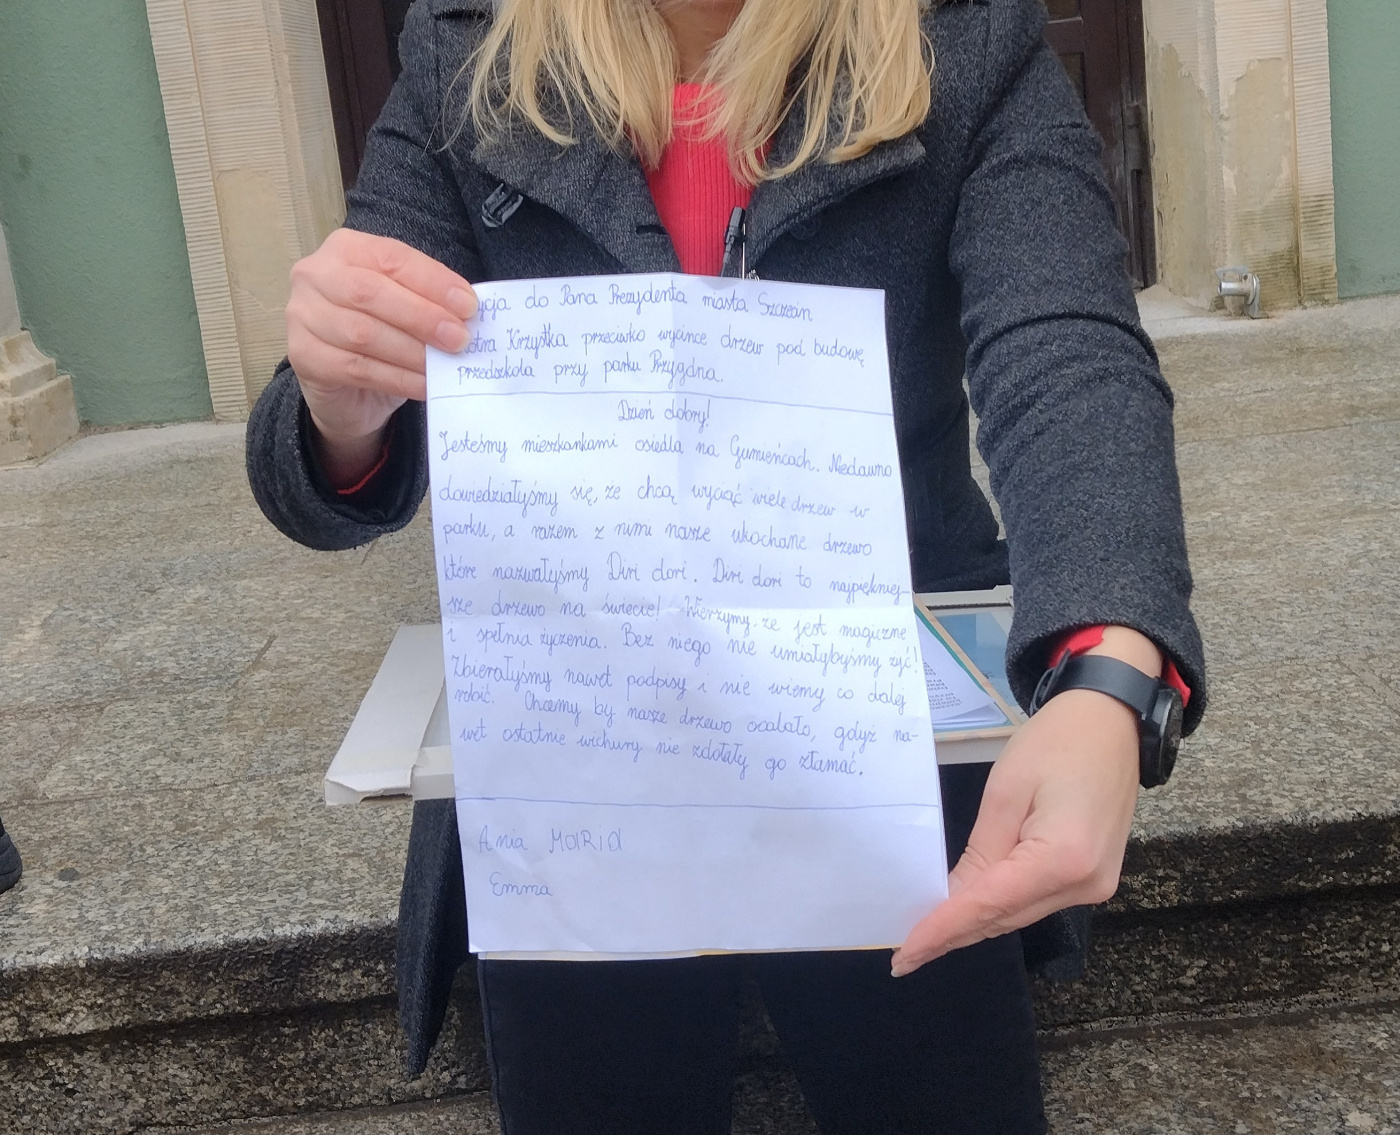 ycja do Pana Prezydenta miasta Szczecin
otra Krzystka przeciwko wycince drzew pod budowę
przedszkola przy parku Przygodna.
Dzień dobry!
Jesteśmy mieszkankami osiedla na Gumieńcach. Niedawno
dowiedziałyśmy się, że chcą wyciąć wiele drzew w
parku, a razem z nimi nasze ukochane drzewo
które nazwałyśmy Diri dori. Diri dori to najpiękniej-
sze drzewo na świecie! Wierzymy, że jest magiczne
i spełnia życzenia. Bez niego nie umiałybyśmy żyć!
Zbierałyśmy nawet podpisy i nie wiemy co dalej
robić. Chcemy by nasze drzewo ocalało, gdyż na-
wet ostatnie wichury nie zdołały go złamać.
Ania MaRia
Emma